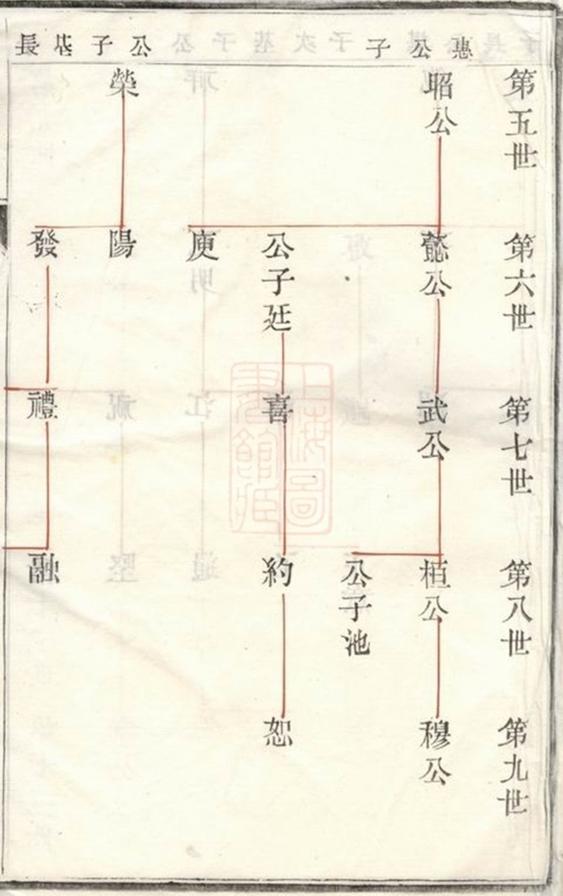 惠公子
公子基長
第五世
昭公
榮
第六世
懿公
公子廷
庾
陽
發
第七世
武公
喜
禮
第八世
桓公
公子池
約
融
第九世
穆公
恕
上海圖
書館藏